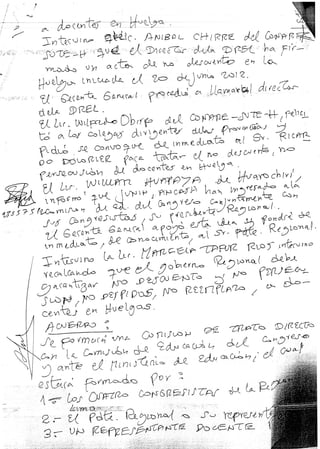 a docentes en Huelga.
Intervino el Lic. ANIBAL CHIRRE del CONARE
SUTE-H que el Director de la DREL ha fir-
mado un acta de no descuento en la
Huelga iniciada el 20 de Junio 2012.
El Gerente General procedió a llamar al director
de la DREL.
El Lic. Wilfredo Obispo del CONARE-SUTE-H,
to a los colegas dirigentes de las provincias y
Pidió se convoque de inmediato al Sr. RICAR
DO para tratar el no descuento, no
persecusión de docentes en Huelga.
El Lic. WILLAR de Huarochirí,
informó que han ingresado a la
Comisión de Ed. del Congreso conjuntamente con
sus Congresistas, su presidente Regional.
El Gerente General apoyó esta idea y pondrá de
inmediato, de conocimiento, al Sr. Pdte. Regional.
Intervino la Lic. MARCELA TAFUR RIOS intervino
recalcando que el gobierno Regional debe
garantizar NO DESCUENTO y NO PERSECU
SION, NO DESPIDOS, NO REEMPLAZO, a do-
centes en Huelgas.
ACUERDO:
Se formará una COMISION DE TRATO DIRECTO
con la Comisión de Educación del Congreso
y ante el Ministerio de Educación; el cual
estará formado por:
1.- Los CUATRO CONGRESISTAS de la Región
Lima
2.- El Pdte. Regional o su represent
3.- UN REPRESENTANTE DOCENTE